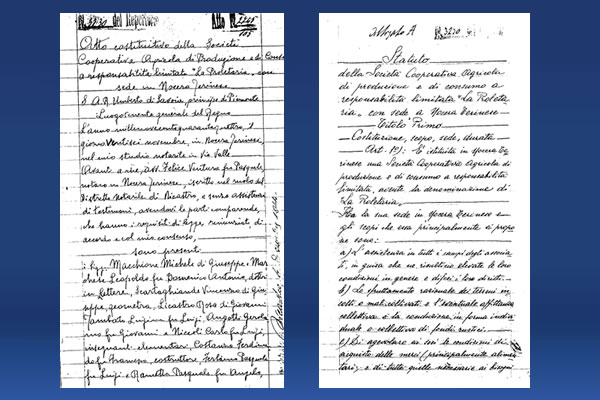 N. 3230 del Repertorio Atto N. 2265
Atto costitutivo della Società
Cooperativa Agricola di Produzione e di Consumo
a responsabilità limitata "La Proletaria", con
sede in Nocera Terinese
S. A. R. Umberto di Savoia, principe di Piemonte
Luogotenente generale del Regno
L'anno millenovecentoquarantaquattro, il
giorno ventisei novembre, in Nocera Terinese,
nel mio studio notarile in Via Valle
Avanti a me, avv. Felice Ventura fu Pasquale,
notaro in Nocera Terinese, iscritto nel ruolo del
Distretto notarile di Nicastro, e senza assistenza
di testimoni, avendovi le parti comparende,
che hanno i requisiti di legge, rinunziato, di
accordo e col mio consenso,
sono presenti
i sigg. Macchione Michele di Giuseppe e Mar
chese Leopoldo fu Domenico Antonio, dottori
in lettere, Scartaghiande Vincenzo di Giu
seppe, geometra, Licastro Rosa di Giovanni
Luigina fu Luigi, Angotti Gerola
mo fu Giovanni e Niccoli Carlo fu Luigi,
insegnanti elementari, Costanzo Ferdinan
do fu Francesco, costruttore, Pasquale
fu Luigi e Pasquale fu Angelo,
Allegato A N. 3230
Statuto
della Società Cooperativa Agricola
di produzione e di consumo a
responsabilità limitata "La Proleta
ria" con sede a Nocera Terinese
Titolo Primo
Costituzione, scopo, sede, durata
Art. 1°) È istituita in Nocera Eri
nese una Società Cooperativa Agricola di
produzione e di consumo a responsabilità
limitata, avente la denominazione di
La Proletaria.
Ha la sua sede in Nocera Terinese e
gli scopi che essa principalmente si propo
ne sono:
a) L'assistenza in tutti i campi degli associa
ti, in guisa che ne risultino elevate le loro
condizioni in genere e difesi i loro diritti.
b) Lo sfruttamento razionale dei terreni in
colti o mal coltivati e l'eventuale affittanza
collettiva e la conduzione in forma indivi
duale o collettiva di fondi rustici.
c) Di agevolare ai soci le condizioni di
acquisto delle merci (principalmente alimen
tari) e di tutte quelle necessarie ai bisogni